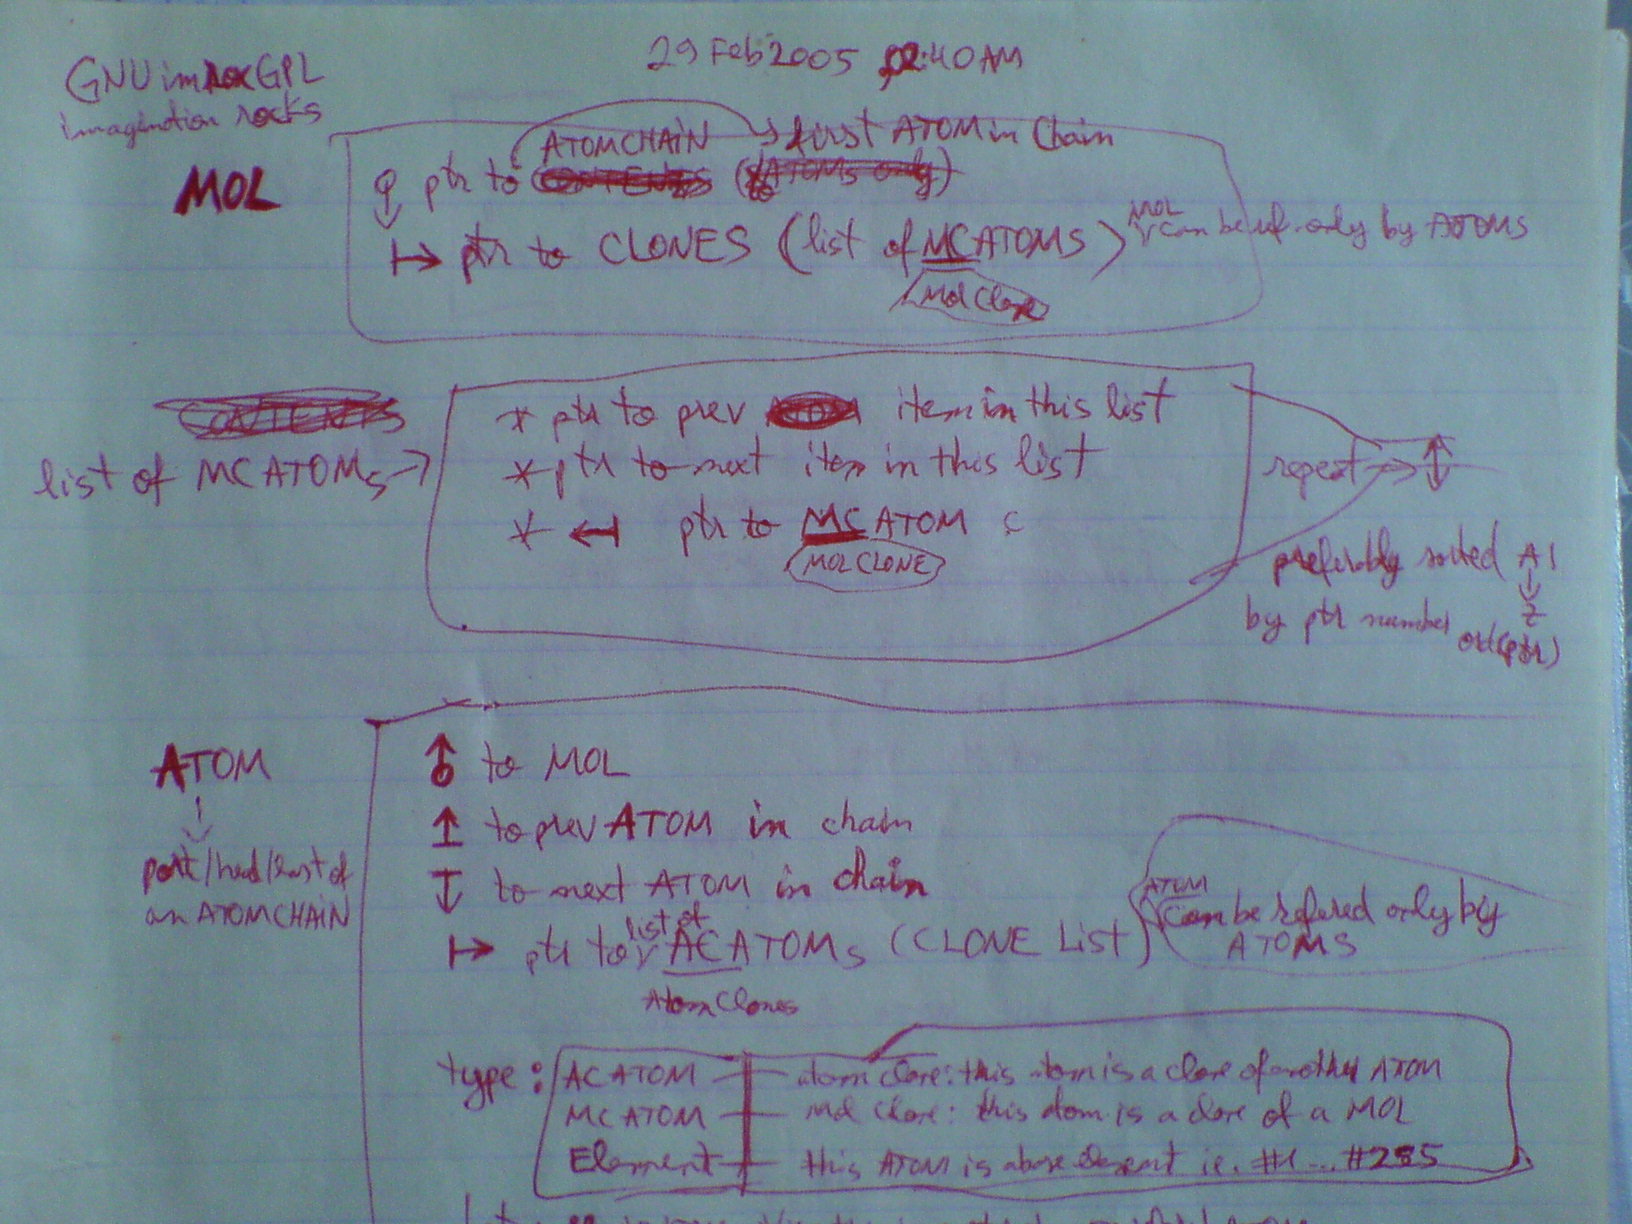 29 Feb 2005 02:40AM
GNU GPL
imagination rocks
MOL
ATOMCHAIN → first ATOM in Chain
ptr to CONTENTS (ATOMs only)
↦ ptr to CLONES (list of MCATOMS) MOL can be ref. only by ATOMS
Mol Clone
CONTENTS
list of MCATOMs →
* ptr to prev ATOM item in this list
* ptr to next item in this list
* ↤ ptr to MCATOM
MOL CLONE
repeat → ↕
preferably sorted A1
↓
Z
by ptr number ord(ptr)
ATOM
↓
part/head/last of
an ATOMCHAIN
to MOL
↥ to prev ATOM in chain
↧ to next ATOM in chain
↦ ptr to list of ACATOMs (CLONE List) ATOM Can be refered only by
ATOMS
Atom Clones
type: ACATOM — atom clone: this atom is a clone of another ATOM
MCATOM — Mol Clone: this atom is a clone of a MOL
Element — this ATOM is a element ie. #1 ... #255